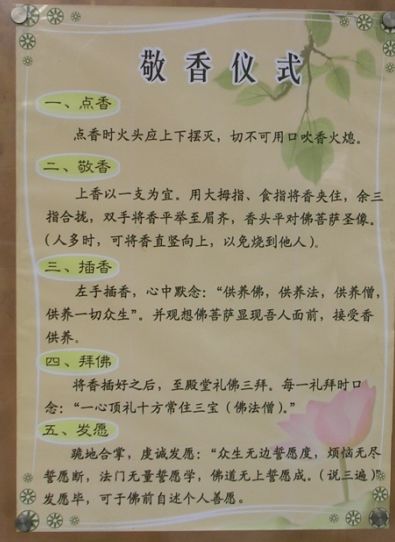 敬香仪式
一、点香
点香时火头应上下摆灭，切不可用口吹香火熄。
二、敬香
上香以一支为宜。用大拇指、食指将香夹住，余三
指合拢，双手将香平举至眉齐，香头平对佛菩萨圣像。
（人多时，可将香直竖向上，以免烧到他人）。
三、插香
左手插香，心中默念：“供养佛，供养法，供养僧，
供养一切众生”。并观想佛菩萨显现吾人面前，接受香
供养。
四、拜佛
将香插好之后，至殿堂礼佛三拜。每一礼拜时口
念：“一心顶礼十方常住三宝（佛法僧）。”
五、发愿
跪地合掌，虔诚发愿：“众生无边誓愿度，烦恼无尽
誓愿断，法门无量誓愿学，佛道无上誓愿成。（说三遍）
发愿毕，可于佛前自述个人善愿。